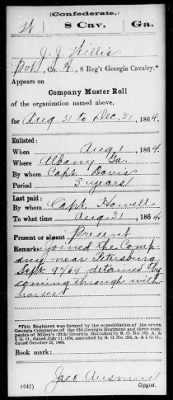 (Confederate.)
W 8 Cav. Ga.
J. J. Willis
Pvt, Co. , 8 Reg't Georgia Cavalry.*
Appears on
Company Muster Roll
of the organization named above,
for Aug 31 to Dec 31, 1864.
Enlisted:
When Aug 1, 1864.
Where Albany Ga.
By whom Capt. Davis
Period 3 years
Last paid:
By whom Capt. Howell
To what time Aug 31, 1864.
Present or absent Present
Remarks: Joined the Comp-
any near Petersburg
Sept 9/64 detained by
coming through with
horses
*This Regiment was formed by the consolidation of the seven
Georgia Companies of the 62 Georgia Regiment and three com-
panies of
dated October 31, 1864.
Book mark:
(642) Copyist.